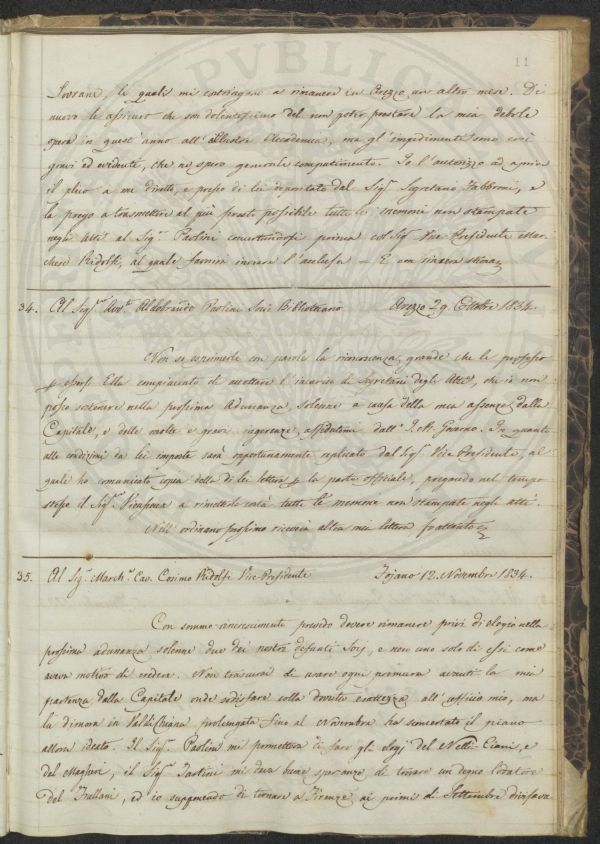 11
Sovrani, le quali mi costringono a rimanere in Arezzo un altro mese. Di
nuovo le assicuro che son dolentissimo del non poter prestare la mia debole
opera in quest'anno all'illustre Accademia, ma gl'impedimenti sono così
gravi ed evidenti, che ne spero generale compatimento. Io l'autorizzo ad aprire
il plico a me diretto, e presso di lei depositato dal Sigr. Segretario Fabbroni, e
la prego a trasmettere al più presto possibile tutte le memorie non stampate
negli Atti al Sigr. Paolini concertandosi prima col Sigr. Vice Presidente Mar-
chese Ridolfi, al quale farà inviare l'acclusa — E con sincera stima
34. Al Sigr. Avvo. Aldobrando Paolini Socio Bibliotecario Arezzo 29. Ottobre 1834.
Non so esprimerle con parole la riconoscenza grande che le professo
p essersi Ella compiaciuto di accettare l'incarico di Segretario degli Atti, che io non
posso sostenere nella prossima Adunanza solenne a causa della mia assenza dalla
Capitale, e delle molte e gravi ingerenze affidatemi dall'I. e R. Governo. In quanto
alle condizioni da lei imposte sarà opportunamente replicato dal Sigr. Vice Presidente, al
quale ho comunicato copia della di lei lettera p la parte officiale, pregando nel tempo
stesso il Sigr. a rimetterle costà tutte le memorie non stampate negli atti.
Nell'ordinario prossimo riceverà altra mia lettera frattanto
35. Al Sigr. March. Cav. Cosimo Ridolfi Vice Presidente Fojano 12. Novembre 1834.
Con sommo rincrescimento prevedo dovere rimanere privi di elogio nella
prossima adunanza solenne due dei nostri defunti Soci, e non uno solo di essi come
aveva motivo di credere. Non trascurai di usare ogni premura avanti la mia
partenza dalla Capitale onde sodisfare colla dovuta esattezza all'ufficio mio, ma
la dimora in Valdichiana prolungata fino al Novembre ha sconcertato il piano
allora ideato. Il Sigr. Paolini mi prometteva di fare gli elogj del Nelli Ciani, e
del Magheri, il Sigr. Tartini mi dava buone speranze di trovare un degno lodatore
del Frullani, ed io supponendo di tornare a Firenze ai primi di Settembre divisava